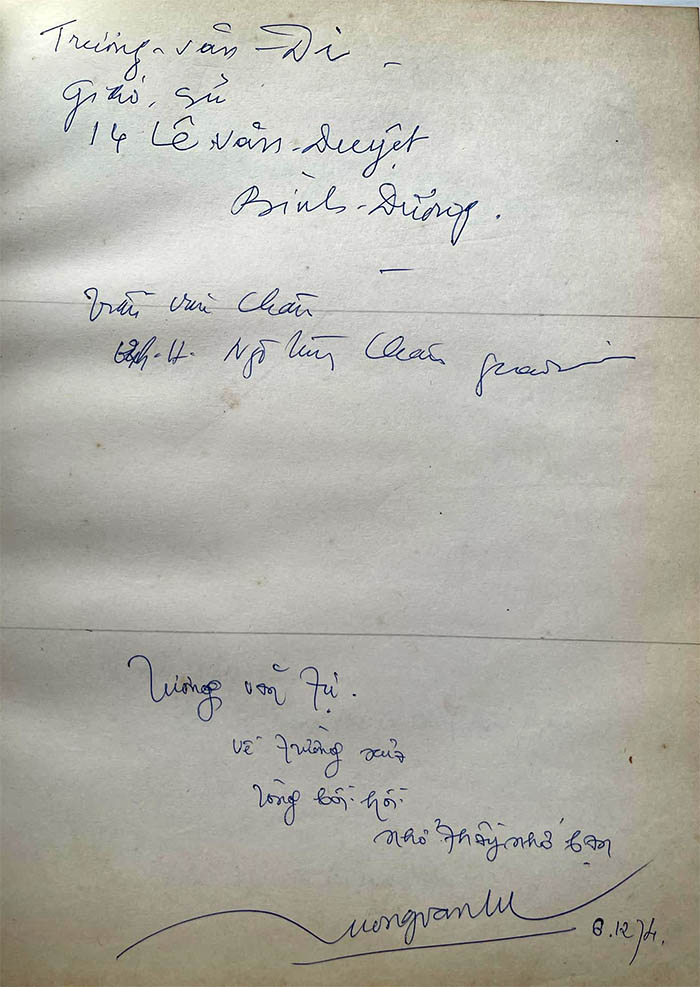 Trương-văn-Di
Giáo, sư
14 Lê văn-Duyệt
Bình-Dương.
Trần văn Chẩn
Ngô Tùng Châu
Lương văn Tự.
về trường xưa
lòng bồi hồi
nhớ thầy nhớ bạn
Luongvantu 8.12.74.